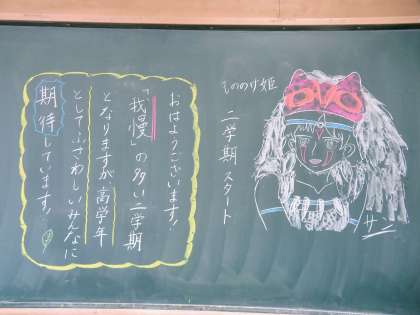 もののけ姫
二学期スタート
サン
おはようございます!
「我慢」の多い二学期
となりますが高学年
としてふさわしいみんなに
期待しています!